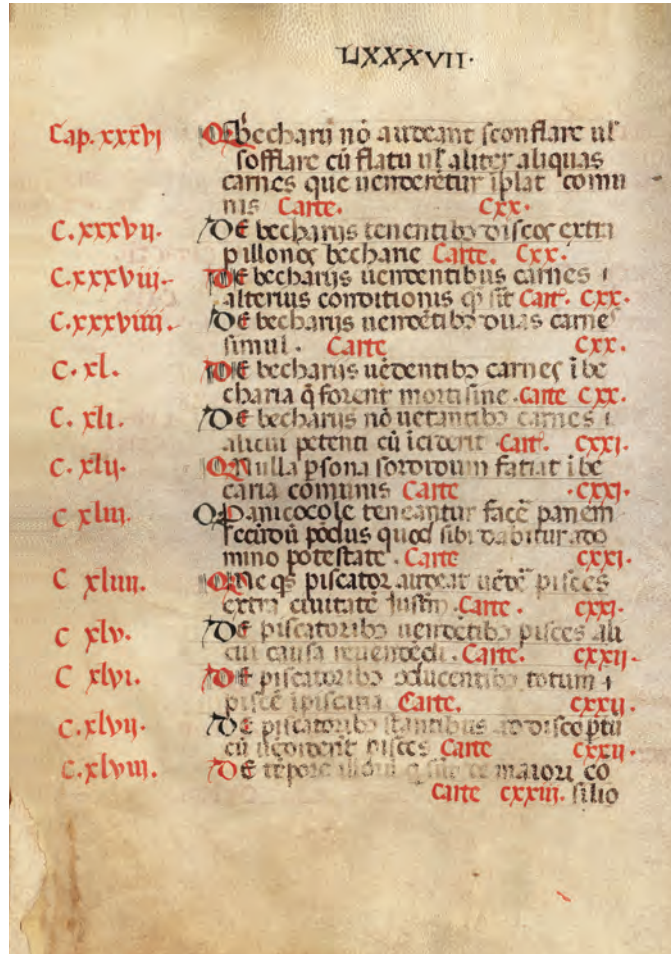 LXXXVII.
Cap. xxxvi Qd becharii nō audeant sconflare ul'
sofflare cū flatu ul' aliter aliquas
carnes que uenderētur ī plat comu
nis Carte. Cxx.
C. xxxvii. De becharijs tenentibꝰ discos extra
pillones becharie Carte. Cxx.
C. xxxviii. De becharijs uendentibus carnes i
alterius conditionis q sit Cart. Cxx.
C. xxxviiii. De becharijs uendētibꝰ duas carnes
simul. Carte Cxx.
C. xl. De becharijs uēdentibꝰ carnes ī be
charia q̄ forent mortisine. Carte Cxx.
C. xli. De becharijs nō uetantibꝰ carnes i
alicui petenti cū īciderit Cart. cxxi.
C. xlij. Q Nulla psona sordidum fatiat ī be
caria comunis Carte .cxxi.
C xliii. Q Panicocole teneantur facē panem
secūdū pōdus quod sibi dabitur a do
mino potestate. Carte cxxi.
C xliiii. Ne qs piscator audeat uēdē pisces
extra ciuitatē Carte. cxxi.
C xlv. De piscatoribꝰ uendētibꝰ pisces ali
cui causa reuendēdi. Carte. cxxii.
C xlvi. De piscatoribꝰ oducentibꝰ totum i
piscē ī piscaria Carte. cxxii.
C. xlvij. De piscatoribꝰ stantibus ad discoptū
cū uēdiderīt pisces Carte cxxii.
C. xlviii. De tēpore maiori cō
Carte cxxiii. silio